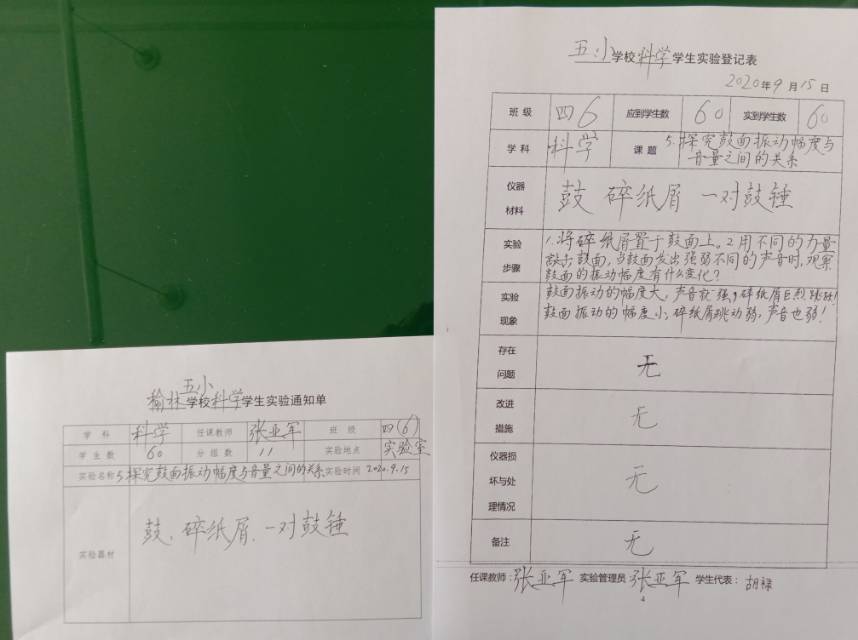 五小
榆林学校科学学生实验通知单
学科 科学 任课教师 张亚军 班级 四(6)
学生数 60 分组数 11 实验地点 实验室
实验名称 5.探究鼓面振动幅度与音量之间的关系 实验时间 2020.9.15
实验器材 鼓、碎纸屑、一对鼓锤
五小学校科学学生实验登记表
2020年9月15日
班级 四6 应到学生数 60 实到学生数 60
学科 科学 课题 5.探究鼓面振动幅度与
音量之间的关系
仪器
材料
鼓 碎纸屑 一对鼓锤
实验
步骤
1.将碎纸屑置于鼓面上。2用不同的力量
敲击鼓面,当鼓面发出强弱不同的声音时,观察
鼓面的振动幅度有什么变化?
实验
现象
鼓面振动的幅度大,声音就强,碎纸屑巨烈跳跃!
鼓面振动的幅度小,碎纸屑跳动弱,声音也弱!
存在
问题
无
改进
措施
无
仪器损
坏与处
理情况
无
备注 无
任课教师:张亚军 实验管理员 张亚军 学生代表:胡禄
4